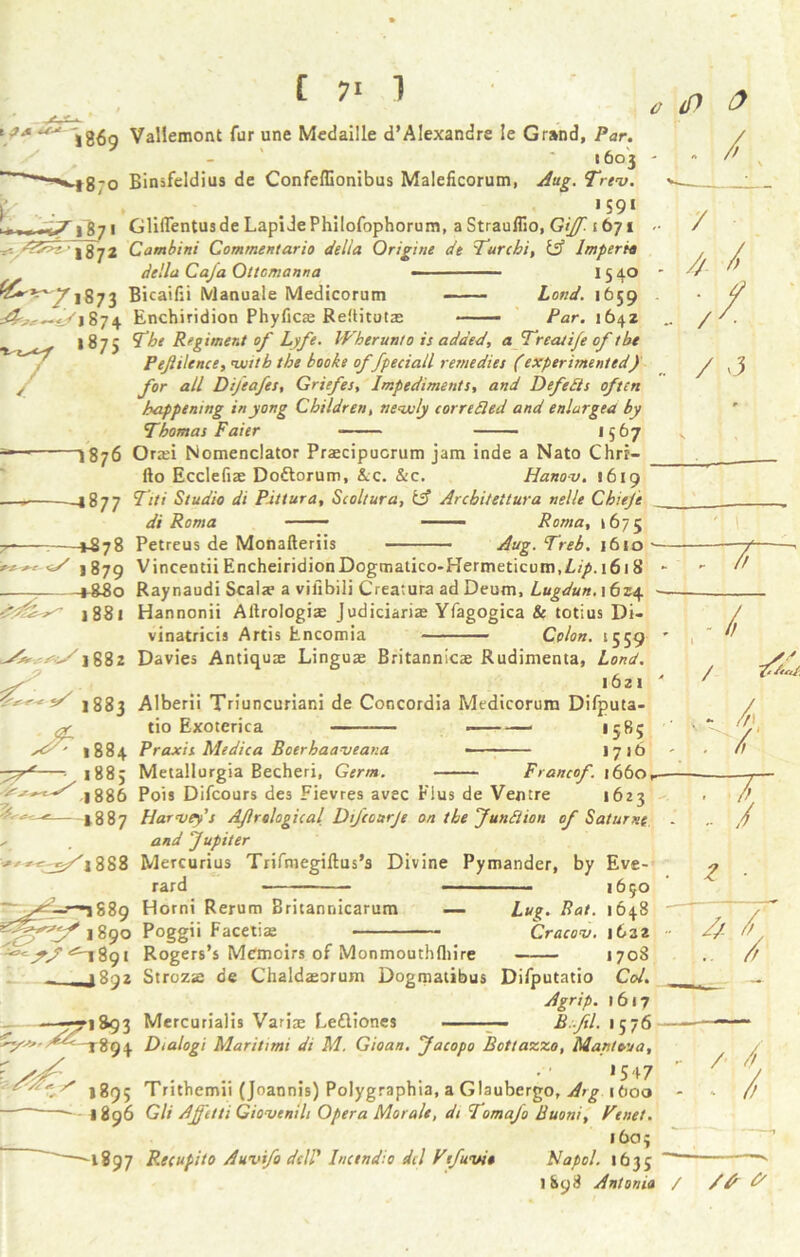 [ 71 ]
1869 Vallemont ſur une Medaille d'Alexandre le Grand, Par.
1603
1870 Binsfeldius de Confeſſionibus Maleficorum, Aug. Trev.
1591
1871 Gliſſentus de Lapide Philoſophorum, a Strauſſio, Giſſ. 1671
1872 Cambini Commentario della Origine de Turchi, & Imperio
della Caſa Ottomanna —— 1540
1873 Bicaiſii Manuale Medicorum —— Lond. 1659
1874 Enchiridion Phyſicæ Reſtitutæ —— Par. 1642
1875 The Regiment of Lyfe. Wherunto is added, a Treatiſe of the
Peſtilence, with the booke of ſpeciall remedies (experimented)
for all Diſeaſes, Griefes, Impediments, and Defects often
happening in yong Children, newly corrected and enlarged by
Thomas Faier —— —— 1567
1876 Oræi Nomenclator Præcipuorum jam inde a Nato Chri-
ſto Eccleſiæ Doctorum, &c. &c. Hanov. 1619
1877 Titi Studio di Pittura, Scoltura, & Architettura nelle Chieſe
di Roma —— —— Roma, 1675
1878 Petreus de Monaſteriis —— Aug. Treb. 1610
1879 Vincentii Encheiridion Dogmatico-Hermeticum, Lip. 1618
1880 Raynaudi Scalæ a viſibili Creatura ad Deum, Lugdun. 1624
1881 Hannonii Aſtrologiæ Judiciariæ Yſagogica & totius Di-
vinatricis Artis Encomia —— Colon. 1559
1882 Davies Antiquæ Linguæ Britannicæ Rudimenta, Lond.
1621
1883 Alberii Triuncuriani de Concordia Medicorum Diſputa-
tio Exoterica —— —— 1585
1884 Praxis Medica Boerhaaveana —— 1716
1885 Metallurgia Becheri, Germ. —— Francof. 1660
1886 Pois Diſcours des Fievres avec Flus de Ventre 1623
1887 Harvey's Aſtrological Diſcourſe on the Junction of Saturne
and Jupiter
1888 Mercurius Triſmegiſtus's Divine Pymander, by Eve-
rard —— —— 1650
1889 Horni Rerum Britannicarum — Lug. Bat. 1648
1890 Poggii Facetiæ —— Cracov. 1622
1891 Rogers's Memoirs of Monmouthſhire —— 1708
1892 Strozæ de Chaldæorum Dogmatibus Diſputatio Col.
Agrip. 1617
1893 Mercurialis Variæ Lectiones —— Baſil. 1576
1894 Dialogi Maritimi di M. Gioan. Jacopo Bottazzo, Mantova,
1547
1895 Trithemii (Joannis) Polygraphia, a Glaubergo, Arg 1600
1896 Gli Affetti Giovenili Opera Morale, di Tomaſo Buoni, Venet.
1605
1897 Recupito Auviſo dell' Incendio del Veſuvio Napol. 1635
1898 Antonia